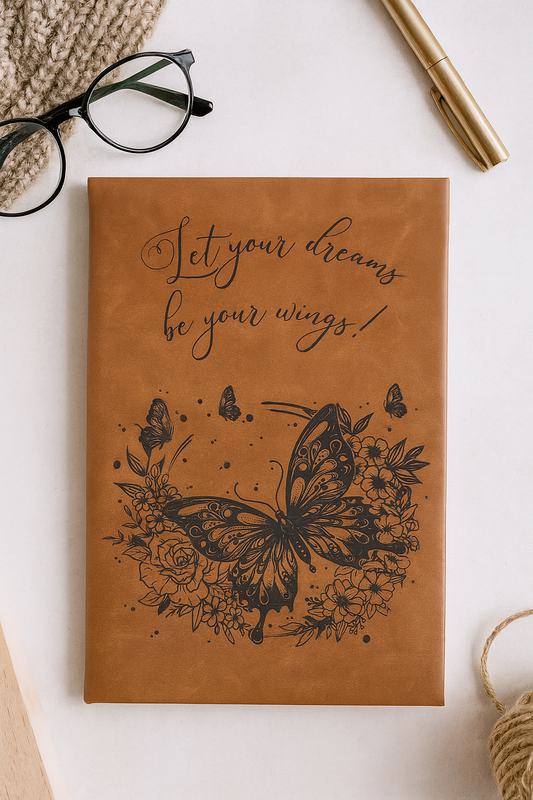 Let your dreams
be your wings!